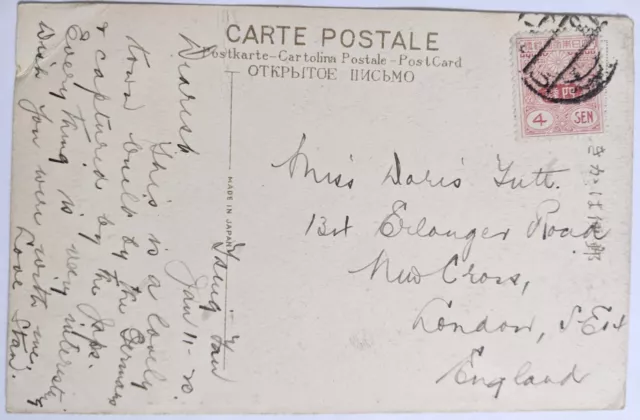 CARTE POSTALE
Postkarte-Cartolina Postale-PostCard
ОТКРЫТОЕ ПИСЬМО
4 SEN
きかは便郵
MADE IN JAPAN
Tsing Tau
Jan 11-20.
Dearest
This is a lovely
town built by the Germans
& captured by the Japs.
Everything is very interesting
Wish you were with me.
Love Stan.
Miss Doris Tutt.
Erlanger Road
New Cross,
London, S.E 14
England